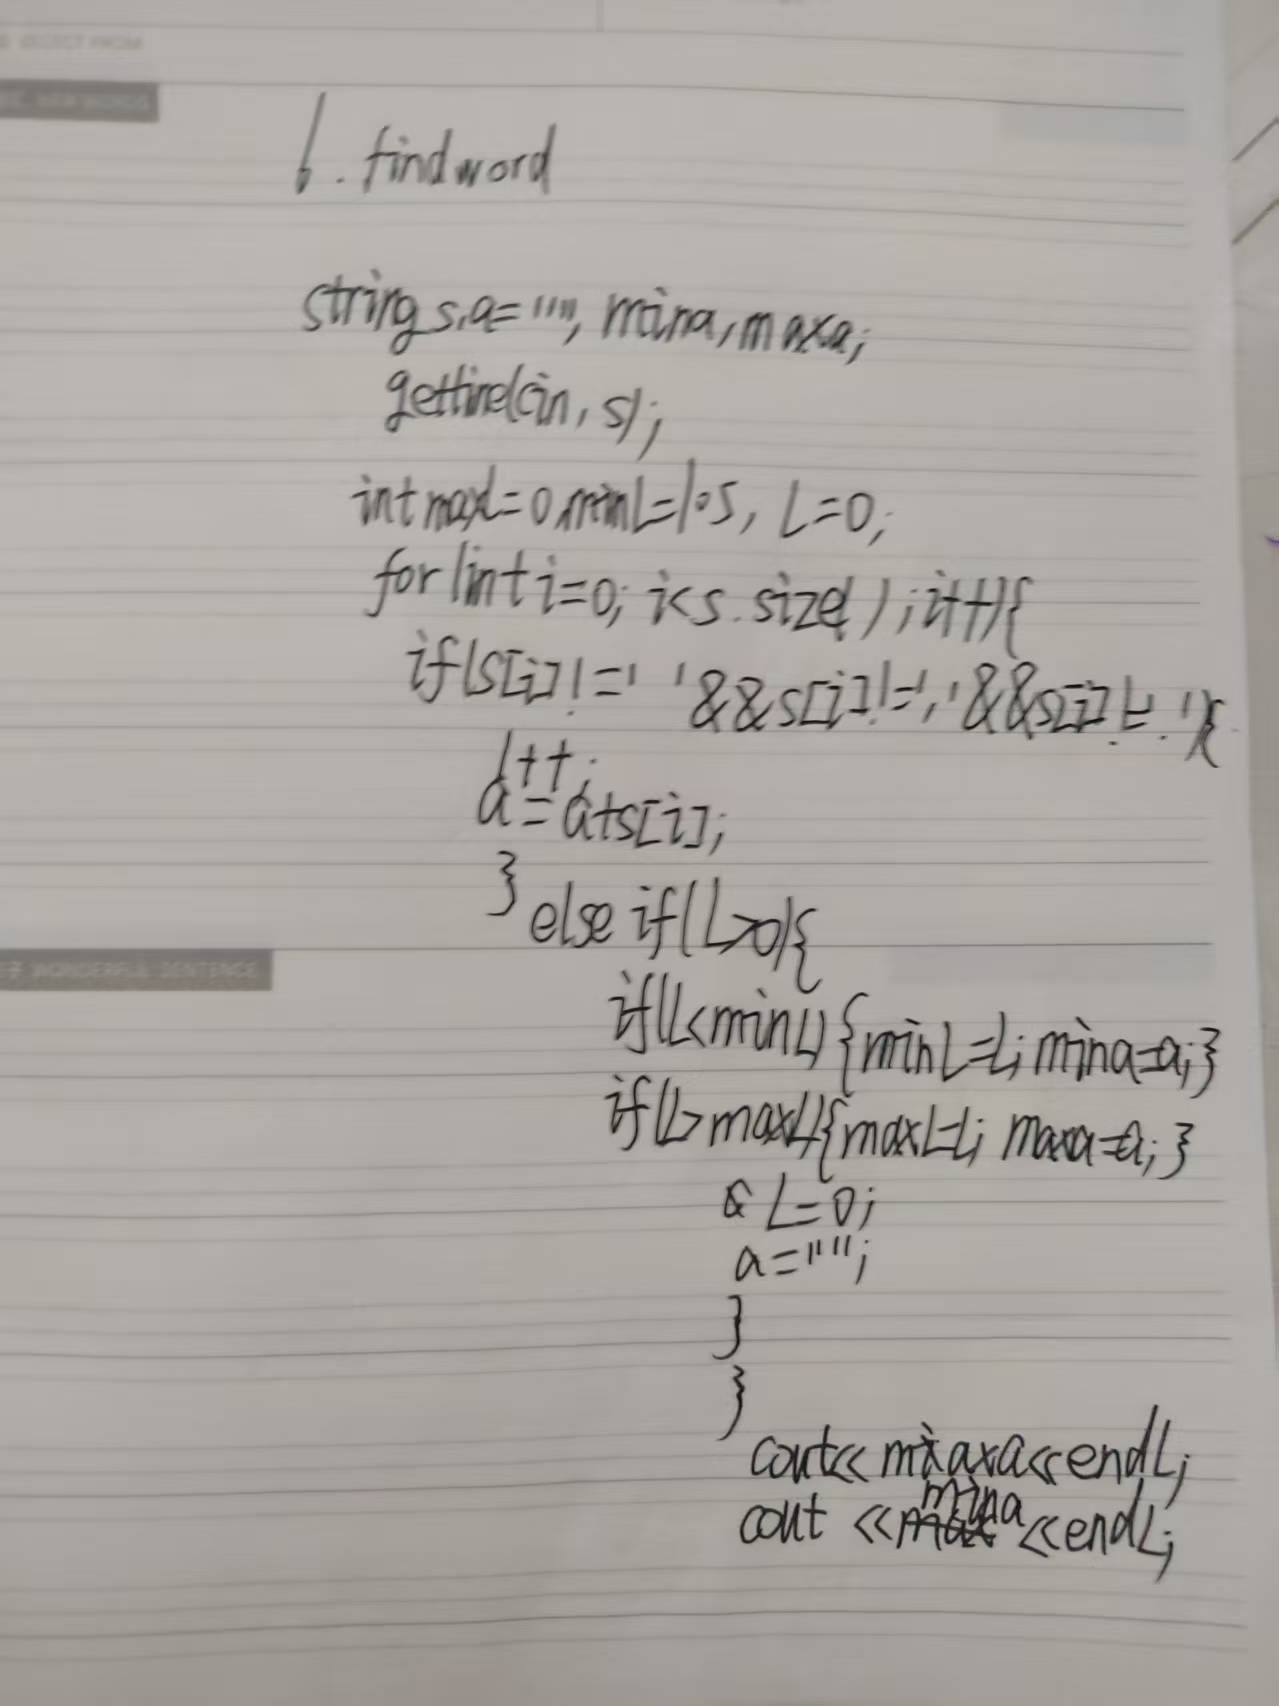 SELECT FROM
6. findword
string s,a="", mina,maxa;
getline(cin, s);
int maxL=0,minL=105, L=0;
for(int i=0; i<s.size(); i++){
if(s[i]!=' '&&s[i]!=','&&s[i]!='.'){
L++;
a=a+s[i];
}
else if(L>0){
WONDERFUL SENTENCE
if(L<minL){minL=L; mina=a;}
if(L>maxL){maxL=L; maxa=a;}
L=0;
a="";
}
}
cout<<maxa<<endL;
cout <<mina<<endL;